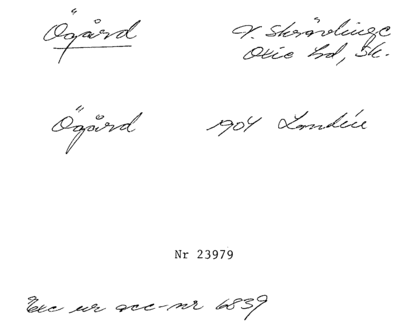 Ögård V. Skrävlinge
Oxie hd, Sk.
Ögård 1904 Landén
Nr 23979
Exc ur acc-nr 6839